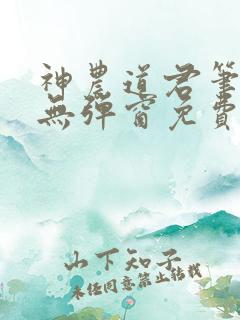 神農道君筆
無彈窗免費
山下知子
未經同意禁止轉載